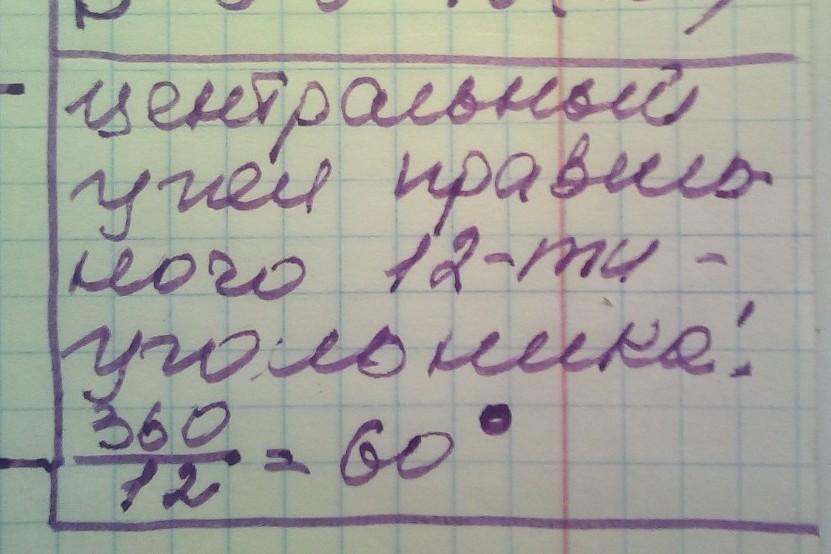 центральный
угол правиль-
ного 12-ти-
угольника:
360
12
= 60°